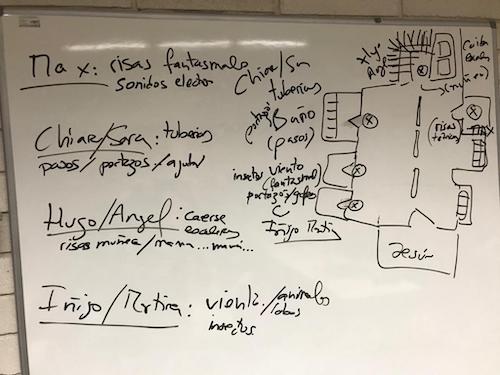 Max: risas fantasmales
sonidos elector
Chiara/Sara: tuberías
pasos/portazos/ajular
Hugo/Angel: caerse
escalera
risas muñeca/mama...mami...
Iñigo/Mrtina: viento/animales
lobos
insectos
Chiar/Sar
tuberias
portazo
Baño
(pasos)
insectos viento
(fantasma)
portazo/golpes
Iñigo Mrtina
Hugo
Ange
Caida
escalera
(muñeca)
(risas
Max
Jesús